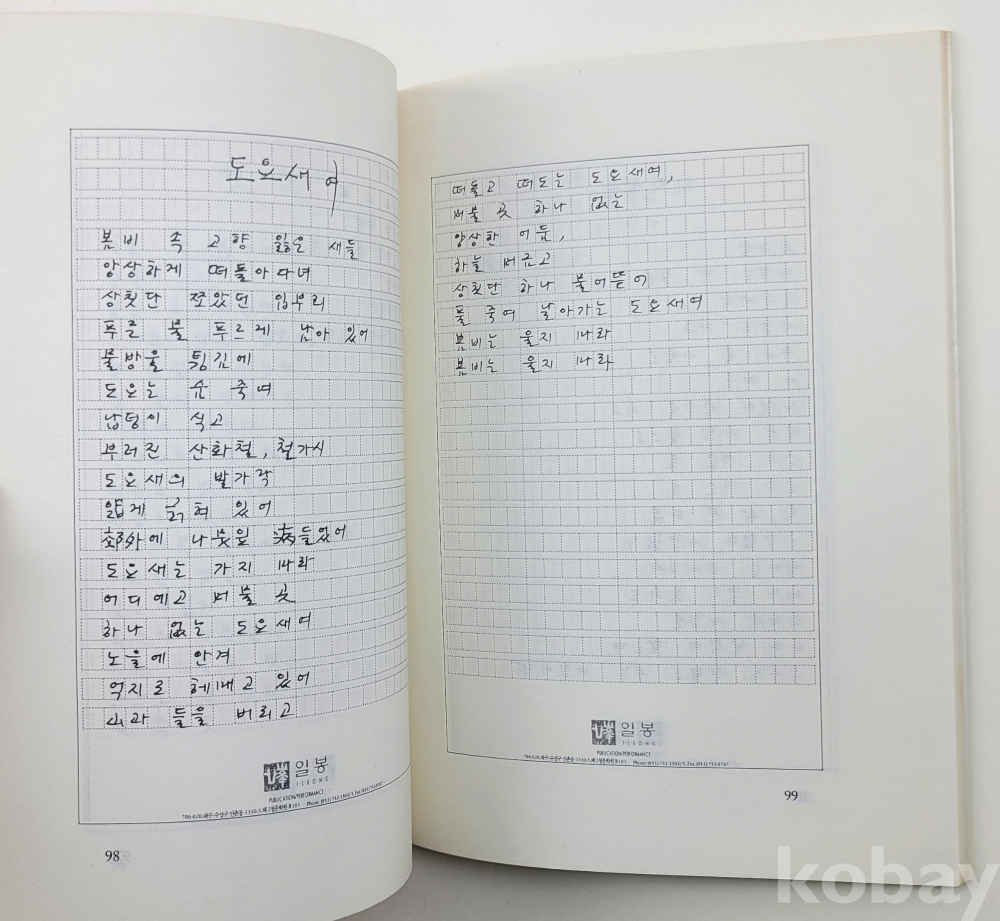 도요새여
봄비 속 고향 잃은 새들
앙상하게 떠돌아다녀
상칫단 쪼았던 입부리
푸른 물 푸르게 남아 있어
물방울 튕김에
도요는 숨 죽여
납덩이 식고
부러진 산화철, 철가시
도요새의 발가락
얇게 긁혀 있어
郊外에 나뭇잎 病들었어
도요새는 가지 마라
어디에고 머물 곳
하나 없는 도요새여
노을에 안겨
억지로 헤매고 있어
山과 들을 버리고
일봉
IL-BONG
PUBLICATION/PERFORMANCE
98
떠돌고 떠도는 도요새여,
머물 곳 하나 없는
앙상한 어둠,
하늘 머금고
상칫단 하나 물어뜯어
풀 죽여 날아가는 도요새여
봄비는 울지 마라
봄비는 울지 마라
일봉
IL-BONG
PUBLICATION/PERFORMANCE
99
kobay